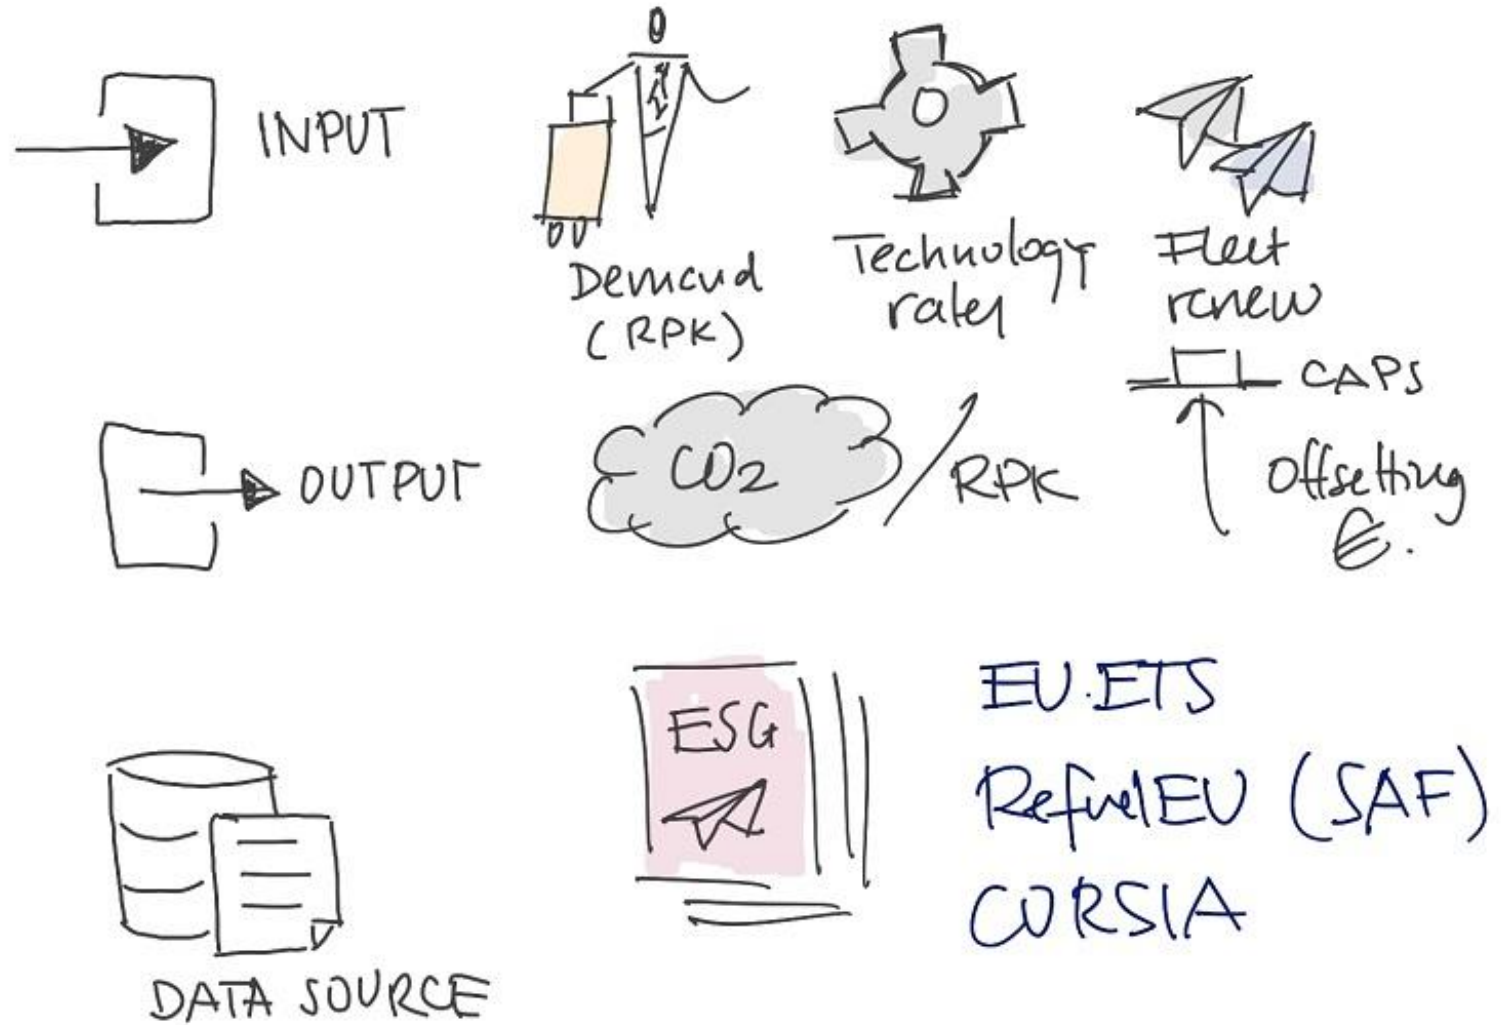 INPUT
Demand
(RPK)
Technology
rates
Fleet
renew
CAPS
OUTPUT
CO2
/ RPK
Offsetting
€.
ESG
EU.ETS
RefuelEU (SAF)
CORSIA
DATA SOURCE